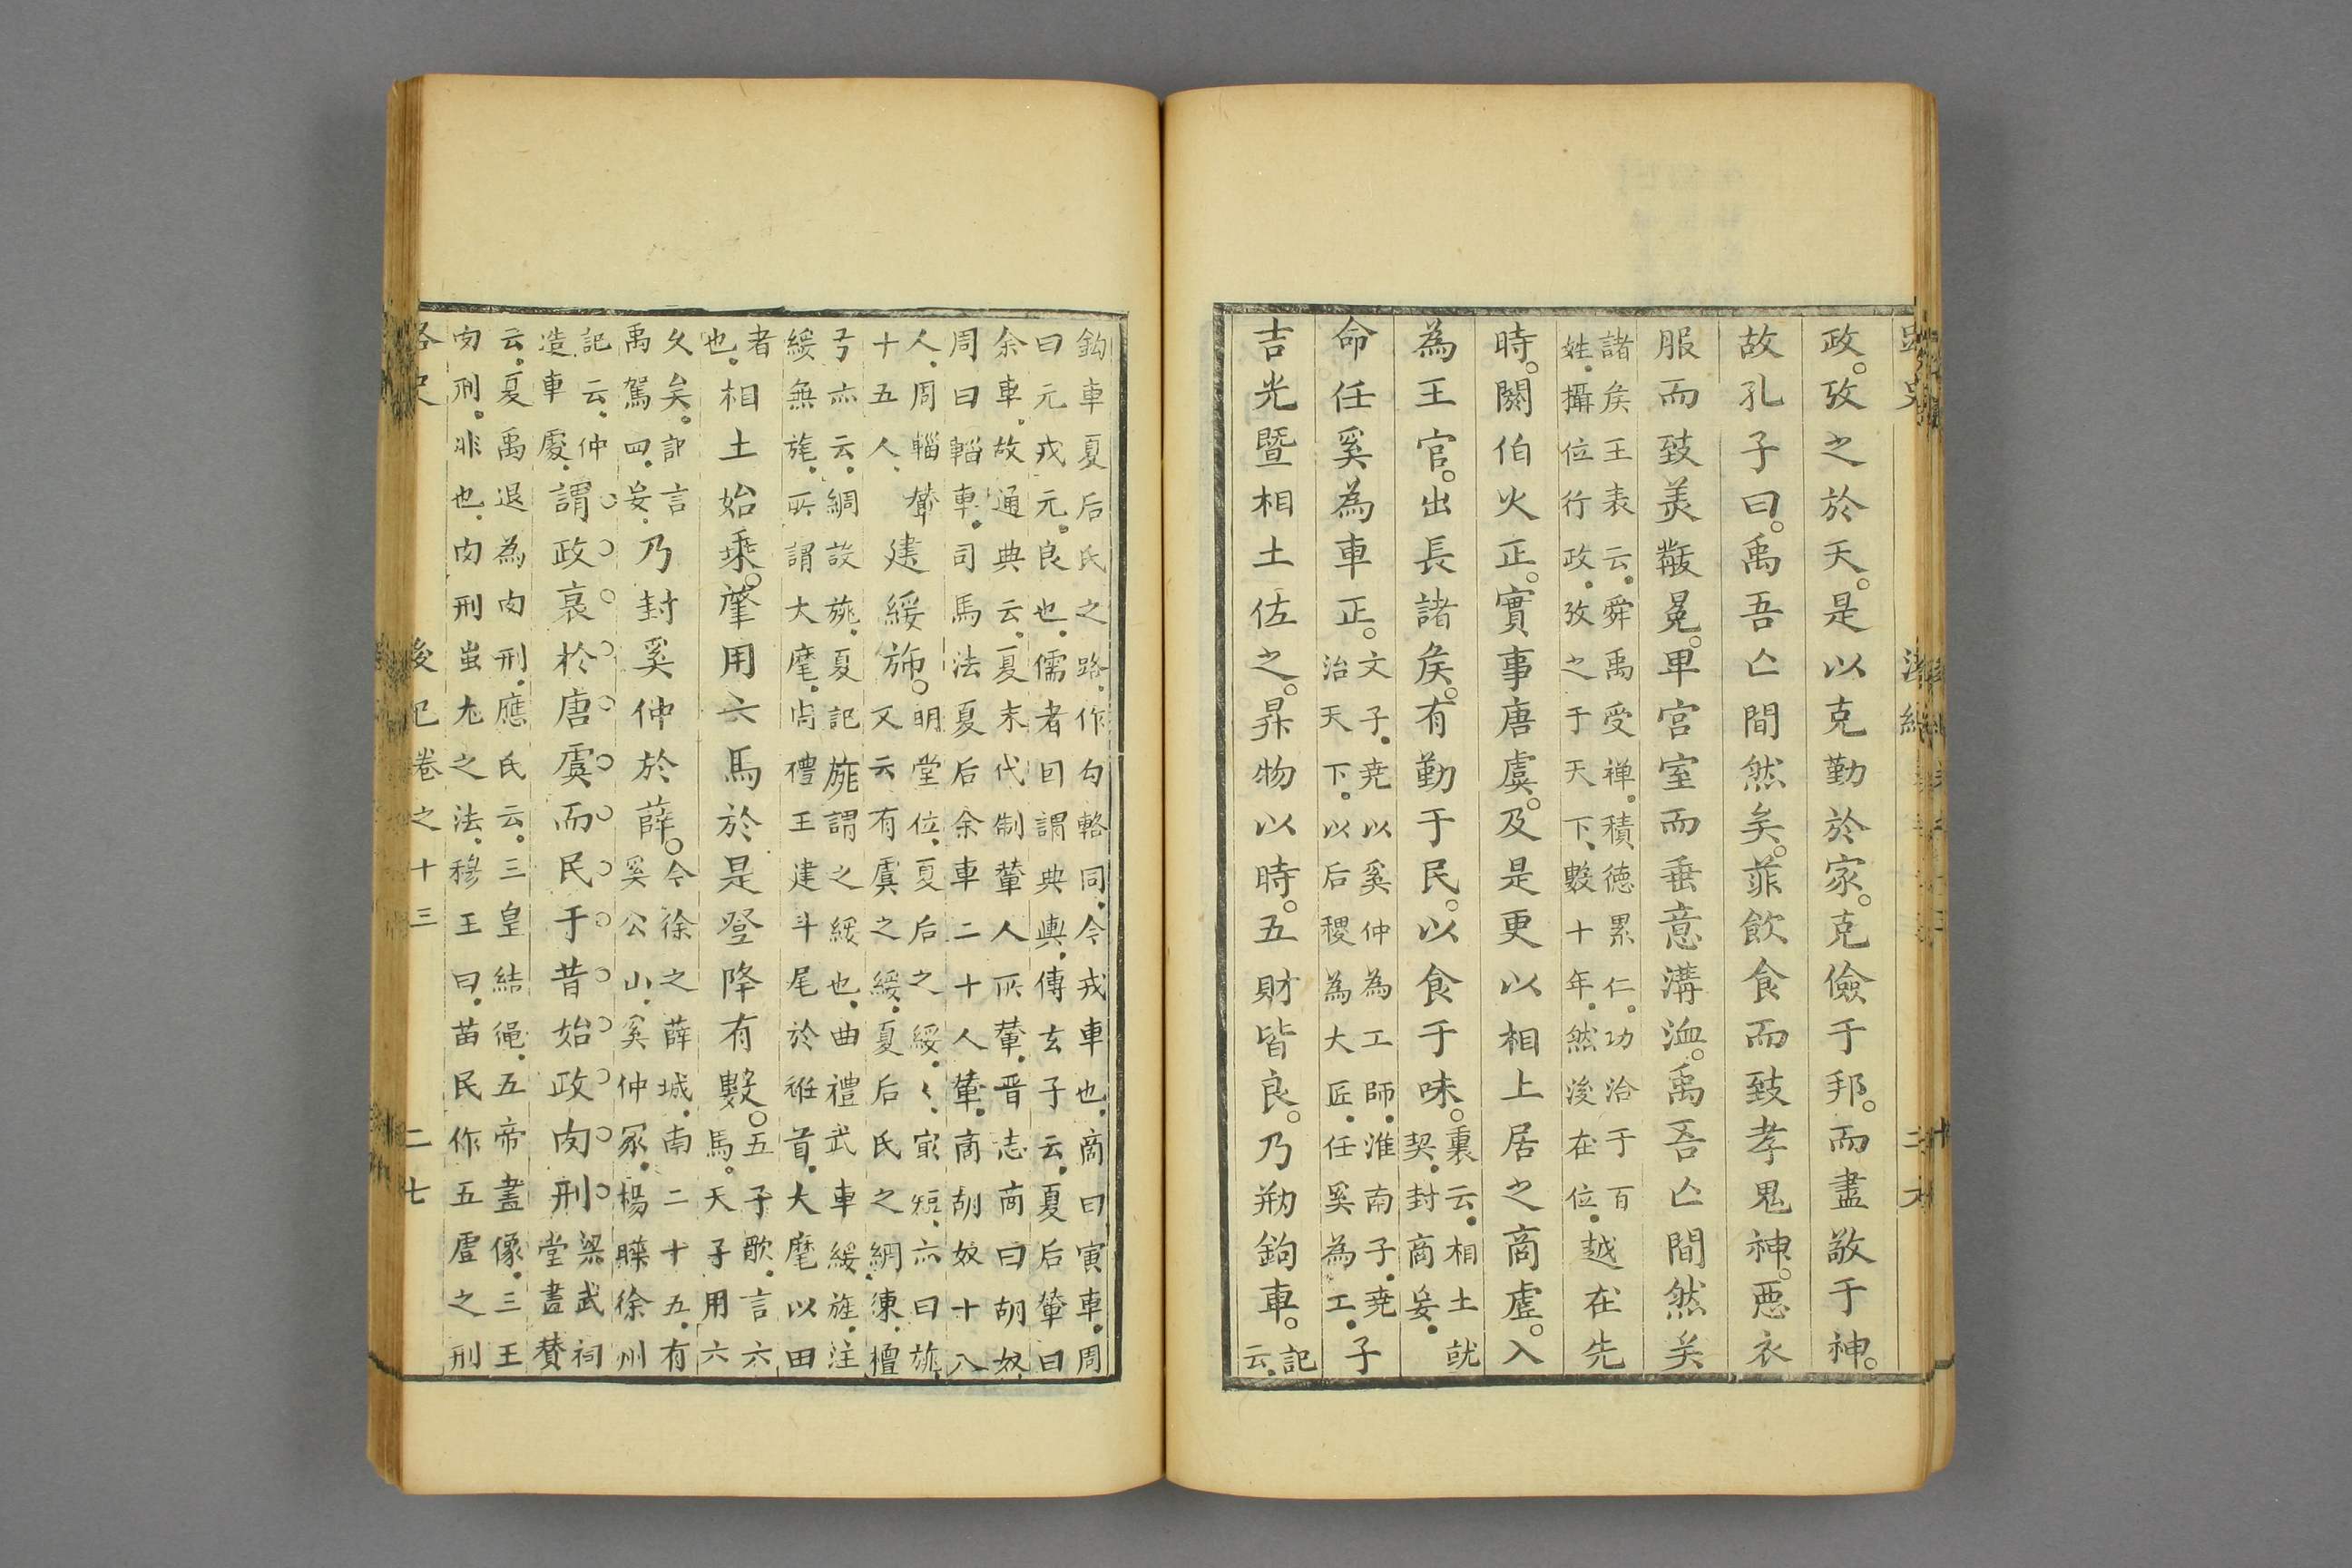 政。攷之於天。是以克勤於家。克儉于邦。而盡敬于神。
故孔子曰。禹吾亾間然矣。菲飲食而致孝鬼神。惡衣
服而致羙黻冕。卑宫室而垂意溝洫。禹吾亾間然矣
諸矦王表云。舜禹受禅。積德累仁。功洽于百
姓。攝位行政。攷之于天下。數十年。然後在位。
越在先
時。閼伯火正。實事唐虞。及是更以相土居之商虛。入
為王官。出長諸矦。有勤于民。以食于味。
裏云。相土就
契。封商妄。
子
命任奚為車正。
文子。尭以奚仲為工師。淮南子。尭
治天下。以后稷為大匠。任奚為工。
吉光暨相土佐之。昇物以時。五財皆良。乃剏鉤車。
記
云。
鈎車夏后氏之路。作勾輅同。今戎車也。商曰寅車。周
曰元戎元。良也。儒者曰謂典輿。傳玄子云。夏后輦曰
余車。故通典云。夏末代制輦人所輦。晋志商曰胡奴。
周曰輜車。司馬法夏后余車二十人輦。商胡奴十八
人。周輜輦
十五人。
建綏斾。
明堂位。夏后之綏。〻㝡短。亦曰旒。
又云有虞之綏。夏后氏之綢練。檀
弓亦云。綢設旐。夏記旐謂之綏也。曲禮武車綏旌。注
綏無旄。所謂大麾。周禮王建斗尾於襍首。大麾以田
者
也。
相土始乘。肇用六馬於是登降有數。
五子歌。言六
馬。天子用六
久矣。記言
禹駕四。妄。
乃封奚仲於薛。
今徐之薛城。南二十五。有
奚公山。奚仲冢。楊曄徐州
記云。仲
造車處。
謂政裒於唐虞而民于昔始政肉刑
梁武祠
堂畫賛
云。夏禹退為肉刑。應氏云。三皇結繩。五帝畫像。三王
肉刑。非也。肉刑蚩尤之法。穆王曰。苗民作五虐之刑
路史
後紀卷之十三
二七